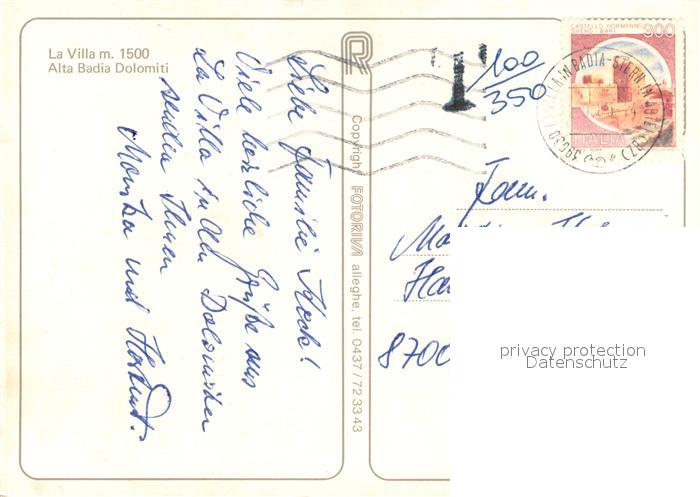 La Villa m. 1500
Alta Badia Dolomiti
Liebe Familie Koch!
Viele herzliche Grüße aus
La Villa in den Dolomiten
senden Ihnen
Monika und
R
Copyright FOTORIVA alleghe, tel. 0437/723343
T 100/350
CASTELLO NORMANNO
SVEVO - BARI
300
ITALIA
LA VILLA IN BADIA - STERN IN ABTEI (BZ)
39030
Fam.
8700
privacy protection
Datenschutz